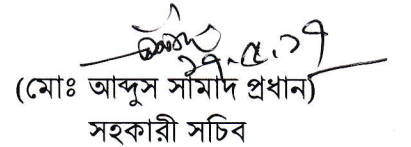 ২৭.৫.১৭
(মোঃ আব্দুস সামাদ প্রধান)
সহকারী সচিব